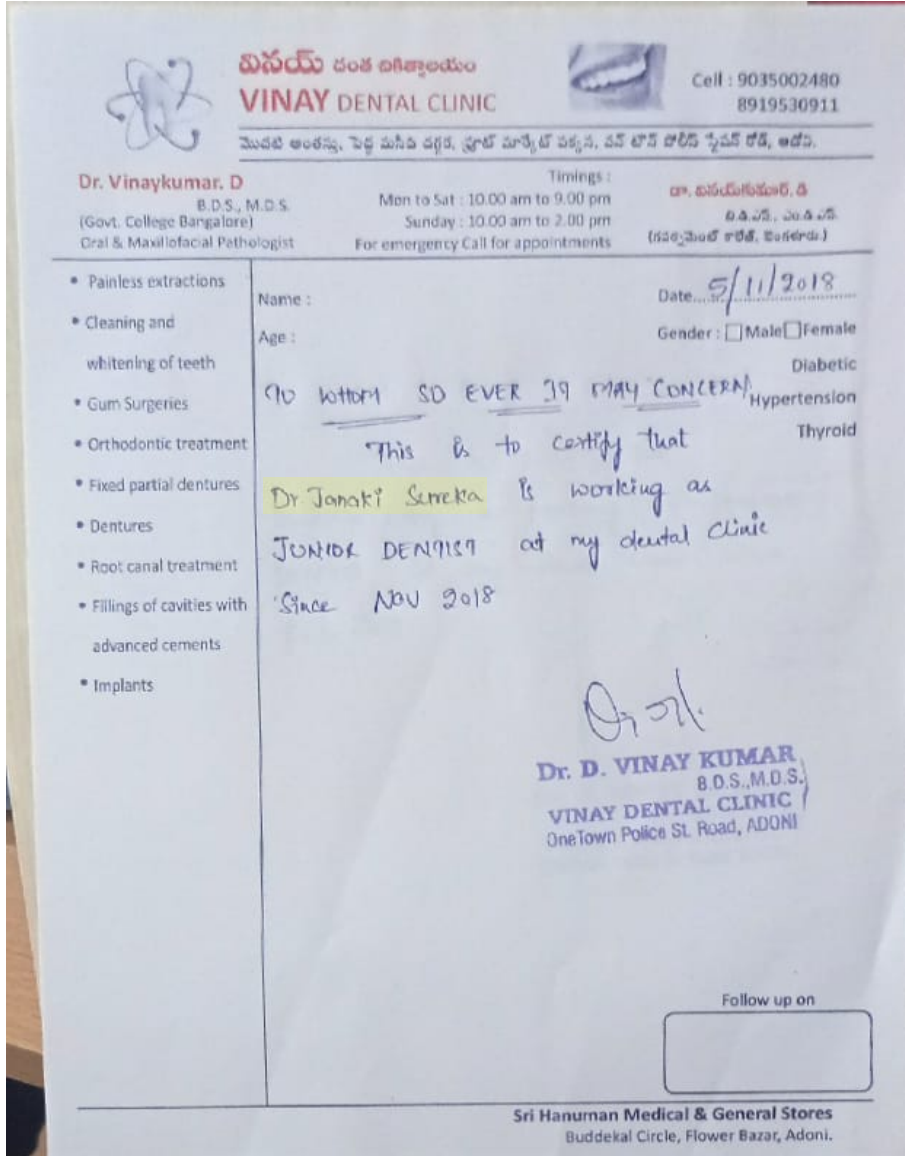 వినయ్ దంత చికిత్సాలయం
VINAY DENTAL CLINIC
Cell : 9035002480
8919530911
మొదటి అంతస్తు, పెద్ద మసీదు దగ్గర, ఫ్రూట్ మార్కెట్ పక్కన, వన్ టౌన్ పోలీస్ స్టేషన్ రోడ్, ఆదోని.
Dr. Vinaykumar. D
B.D.S., M.D.S.
(Govt. College Bangalore)
Oral & Maxillofacial Pathologist
Timings :
Mon to Sat : 10.00 am to 9.00 pm
Sunday : 10.00 am to 2.00 pm
For emergency Call for appointments
డా. వినయ్‌కుమార్. డి
బి.డి.ఎస్., ఎం.డి.ఎస్.
(గవర్నమెంట్ కాలేజ్, బెంగళూరు.)
• Painless extractions
• Cleaning and
whitening of teeth
• Gum Surgeries
• Orthodontic treatment
• Fixed partial dentures
• Dentures
• Root canal treatment
• Fillings of cavities with
advanced cements
• Implants
Name :
Date....5/11/2018
Age :
Gender : Male Female
Diabetic
Hypertension
Thyroid
TO WHOM SO EVER IT MAY CONCERN
This is to certify that
Dr Janaki is working as
JUNIOR DENTIST at my dental Clinic
Since NOV 2018
Dr. D. VINAY KUMAR
B.D.S.,M.D.S.
VINAY DENTAL CLINIC
OneTown Police St. Road, ADONI
Follow up on
Sri Hanuman Medical & General Stores
Buddekal Circle, Flower Bazar, Adoni.